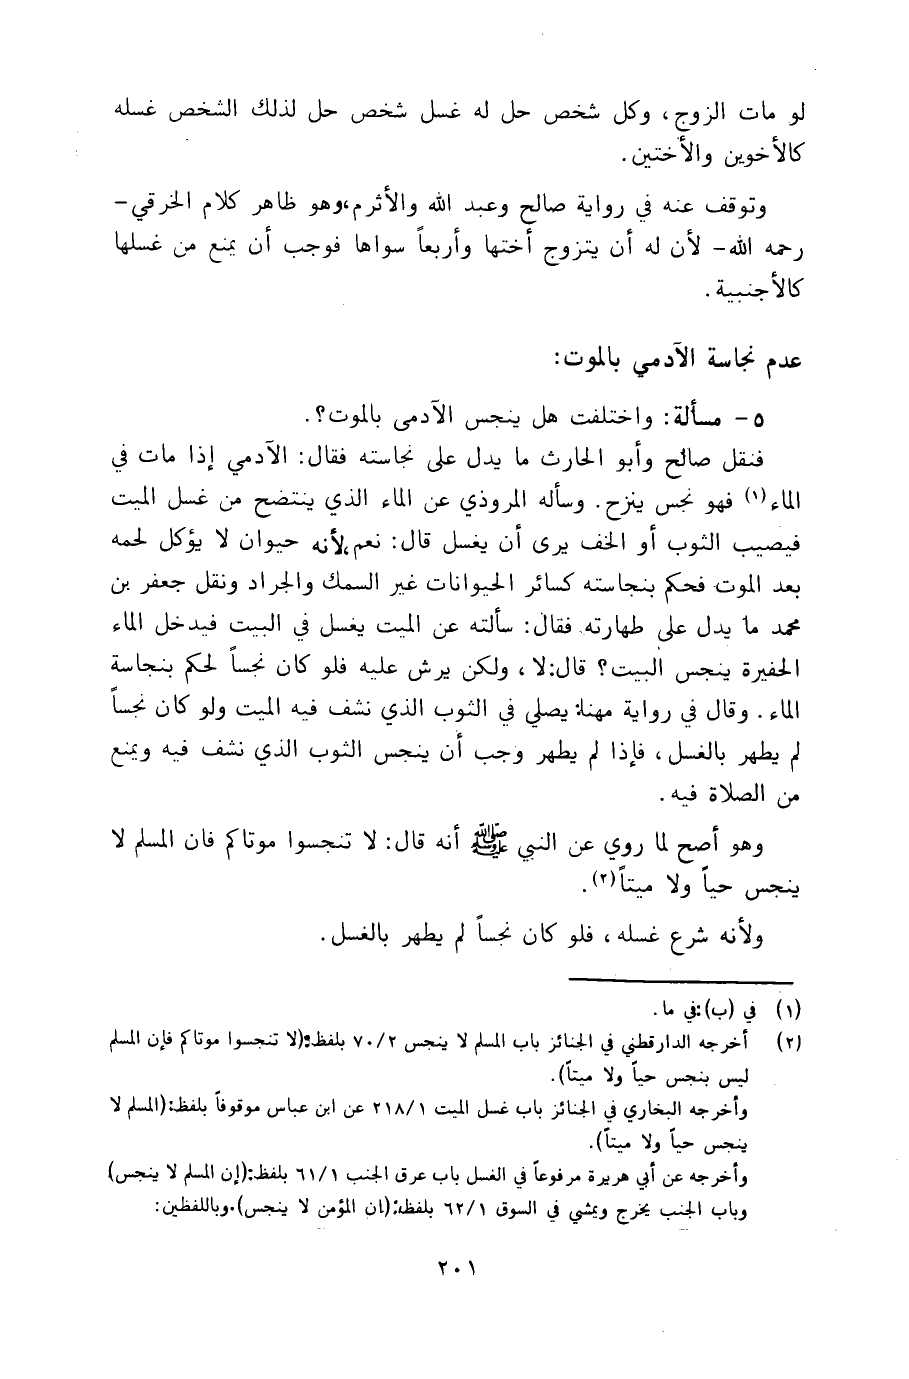 لو مات الزوج، وكل شخص حل له غسل شخص حل لذلك الشخص غسله
كالأخوين والأختين.
وتوقف عنه في رواية صالح وعبد الله والأثرم،وهو ظاهر كلام الخرقي-
رحمه الله- لأن له أن يتزوج أختها وأربعاً سواها فوجب أن يمنع من غسلها
كالأجنبية.
عدم نجاسة الآدمي بالموت:
٥- مسألة: واختلفت هل ينجس الآدمى بالموت؟.
فنقل صالح وأبو الحارث ما يدل على نجاسته فقال: الآدمي إذا مات في
الماء(١) فهو نجس ينزح. وسأله المروذي عن الماء الذي ينتضح من غسل الميت
فيصيب الثوب أو الخف يرى أن يغسل قال: نعم،لأنه حيوان لا يؤكل لحمه
بعد الموت فحكم بنجاسته كسائر الحيوانات غير السمك والجراد ونقل جعفر بن
محمد ما يدل على طهارته فقال: سألته عن الميت يغسل في البيت فيدخل الماء
الحفيرة ينجس البيت؟ قال:لا، ولكن يرش عليه فلو كان نجساً لحكم بنجاسة
الماء. وقال في رواية مهنا: يصلي في الثوب الذي نشف فيه الميت ولو كان نجساً
لم يطهر بالغسل، فإذا لم يطهر وجب أن ينجس الثوب الذي نشف فيه ويمنع
من الصلاة فيه.
وهو أصح لما روي عن النبي ﷺ أنه قال: لا تنجسوا موتاكم فان المسلم لا
ينجس حياً ولا ميتاً(٢).
ولأنه شرع غسله، فلو كان نجساً لم يطهر بالغسل.
(١) في (ب):في ما.
(٢) أخرجه الدارقطني في الجنائز باب المسلم لا ينجس ٧٠/٢ بلفظ:(لا تنجسوا موتاكم فإن المسلم
ليس بنجس حياً ولا ميتاً).
وأخرجه البخاري في الجنائز باب غسل الميت ٢١٨/١ عن ابن عباس موقوفاً بلفظ:(المسلم لا
ينجس حياً ولا ميتاً).
وأخرجه عن أبي هريرة مرفوعاً في الغسل باب عرق الجنب ٦١/١ بلفظ:(إن المسلم لا ينجس)
وباب الجنب يخرج ويمشي في السوق ٦٢/١ بلفظ:(ان المؤمن لا ينجس).وباللفظين:
٢٠١